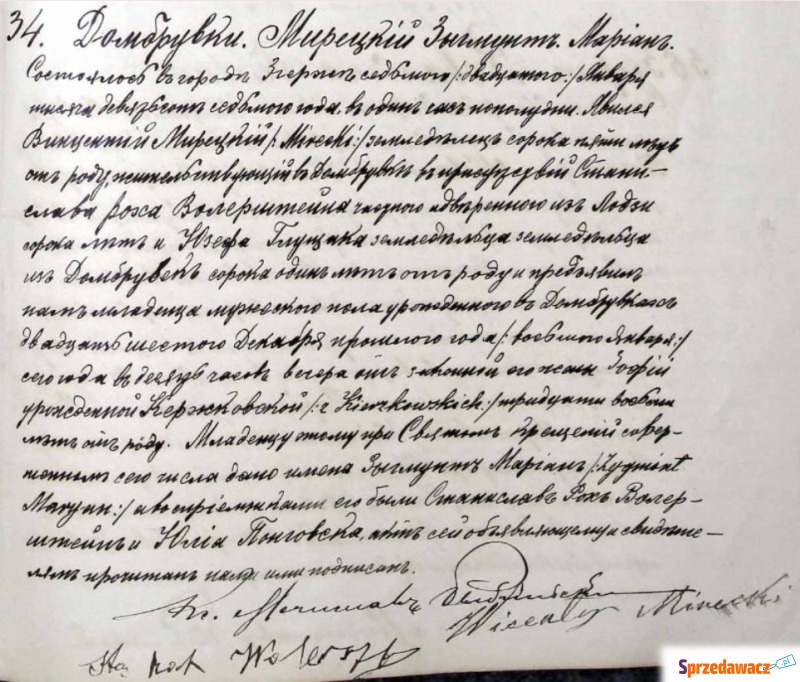 34. Домбрувки. Мирецкій Зыгмунтъ Маріанъ.
Состоялось въ городѣ Згержѣ седьмого /:двадцатого:/ Января
тысяча девятьсотъ седьмого года, въ одинъ часъ пополудни. Явился
Винцентій Мирецкій /:Mirecki:/ земледѣлецъ сорока пяти лѣтъ
отъ роду, жительствующій въ Домбрувкѣ въ присутствіи Стани-
слава Роха Волерштейна частного повѣренного изъ Лодзи
сорока лѣтъ и Юзефа Глущака земледѣльца земледѣльца
изъ Домбрувекъ сорока одинъ лѣтъ отъ роду и предъявилъ
намъ младенца мужеского пола урожденного въ Домбрувкахъ
двадцать шестого Декабря прошлого года /:восьмого Января:/
сего года въ десять часовъ вечера отъ законной его жены Зофій
урожденной Кержковской /:z Kierzkowskich:/ тридцати восьми
лѣтъ отъ роду. Младенцу этому при Святомъ Крещеніи совер-
шенномъ сего числа дано имена Зыгмунтъ Маріанъ /:Zygmunt
Maryan:/ а воспріемниками его были Станиславъ Рохъ Волер-
штейнъ и Юлія Понговска, актъ сей объявляющему и свидѣте-
лямъ прочитанъ нами и ими подписанъ.
Кс. Мечиславъ
Wicenty Mirecki
Sta Roch
Sprzedawacz.pl